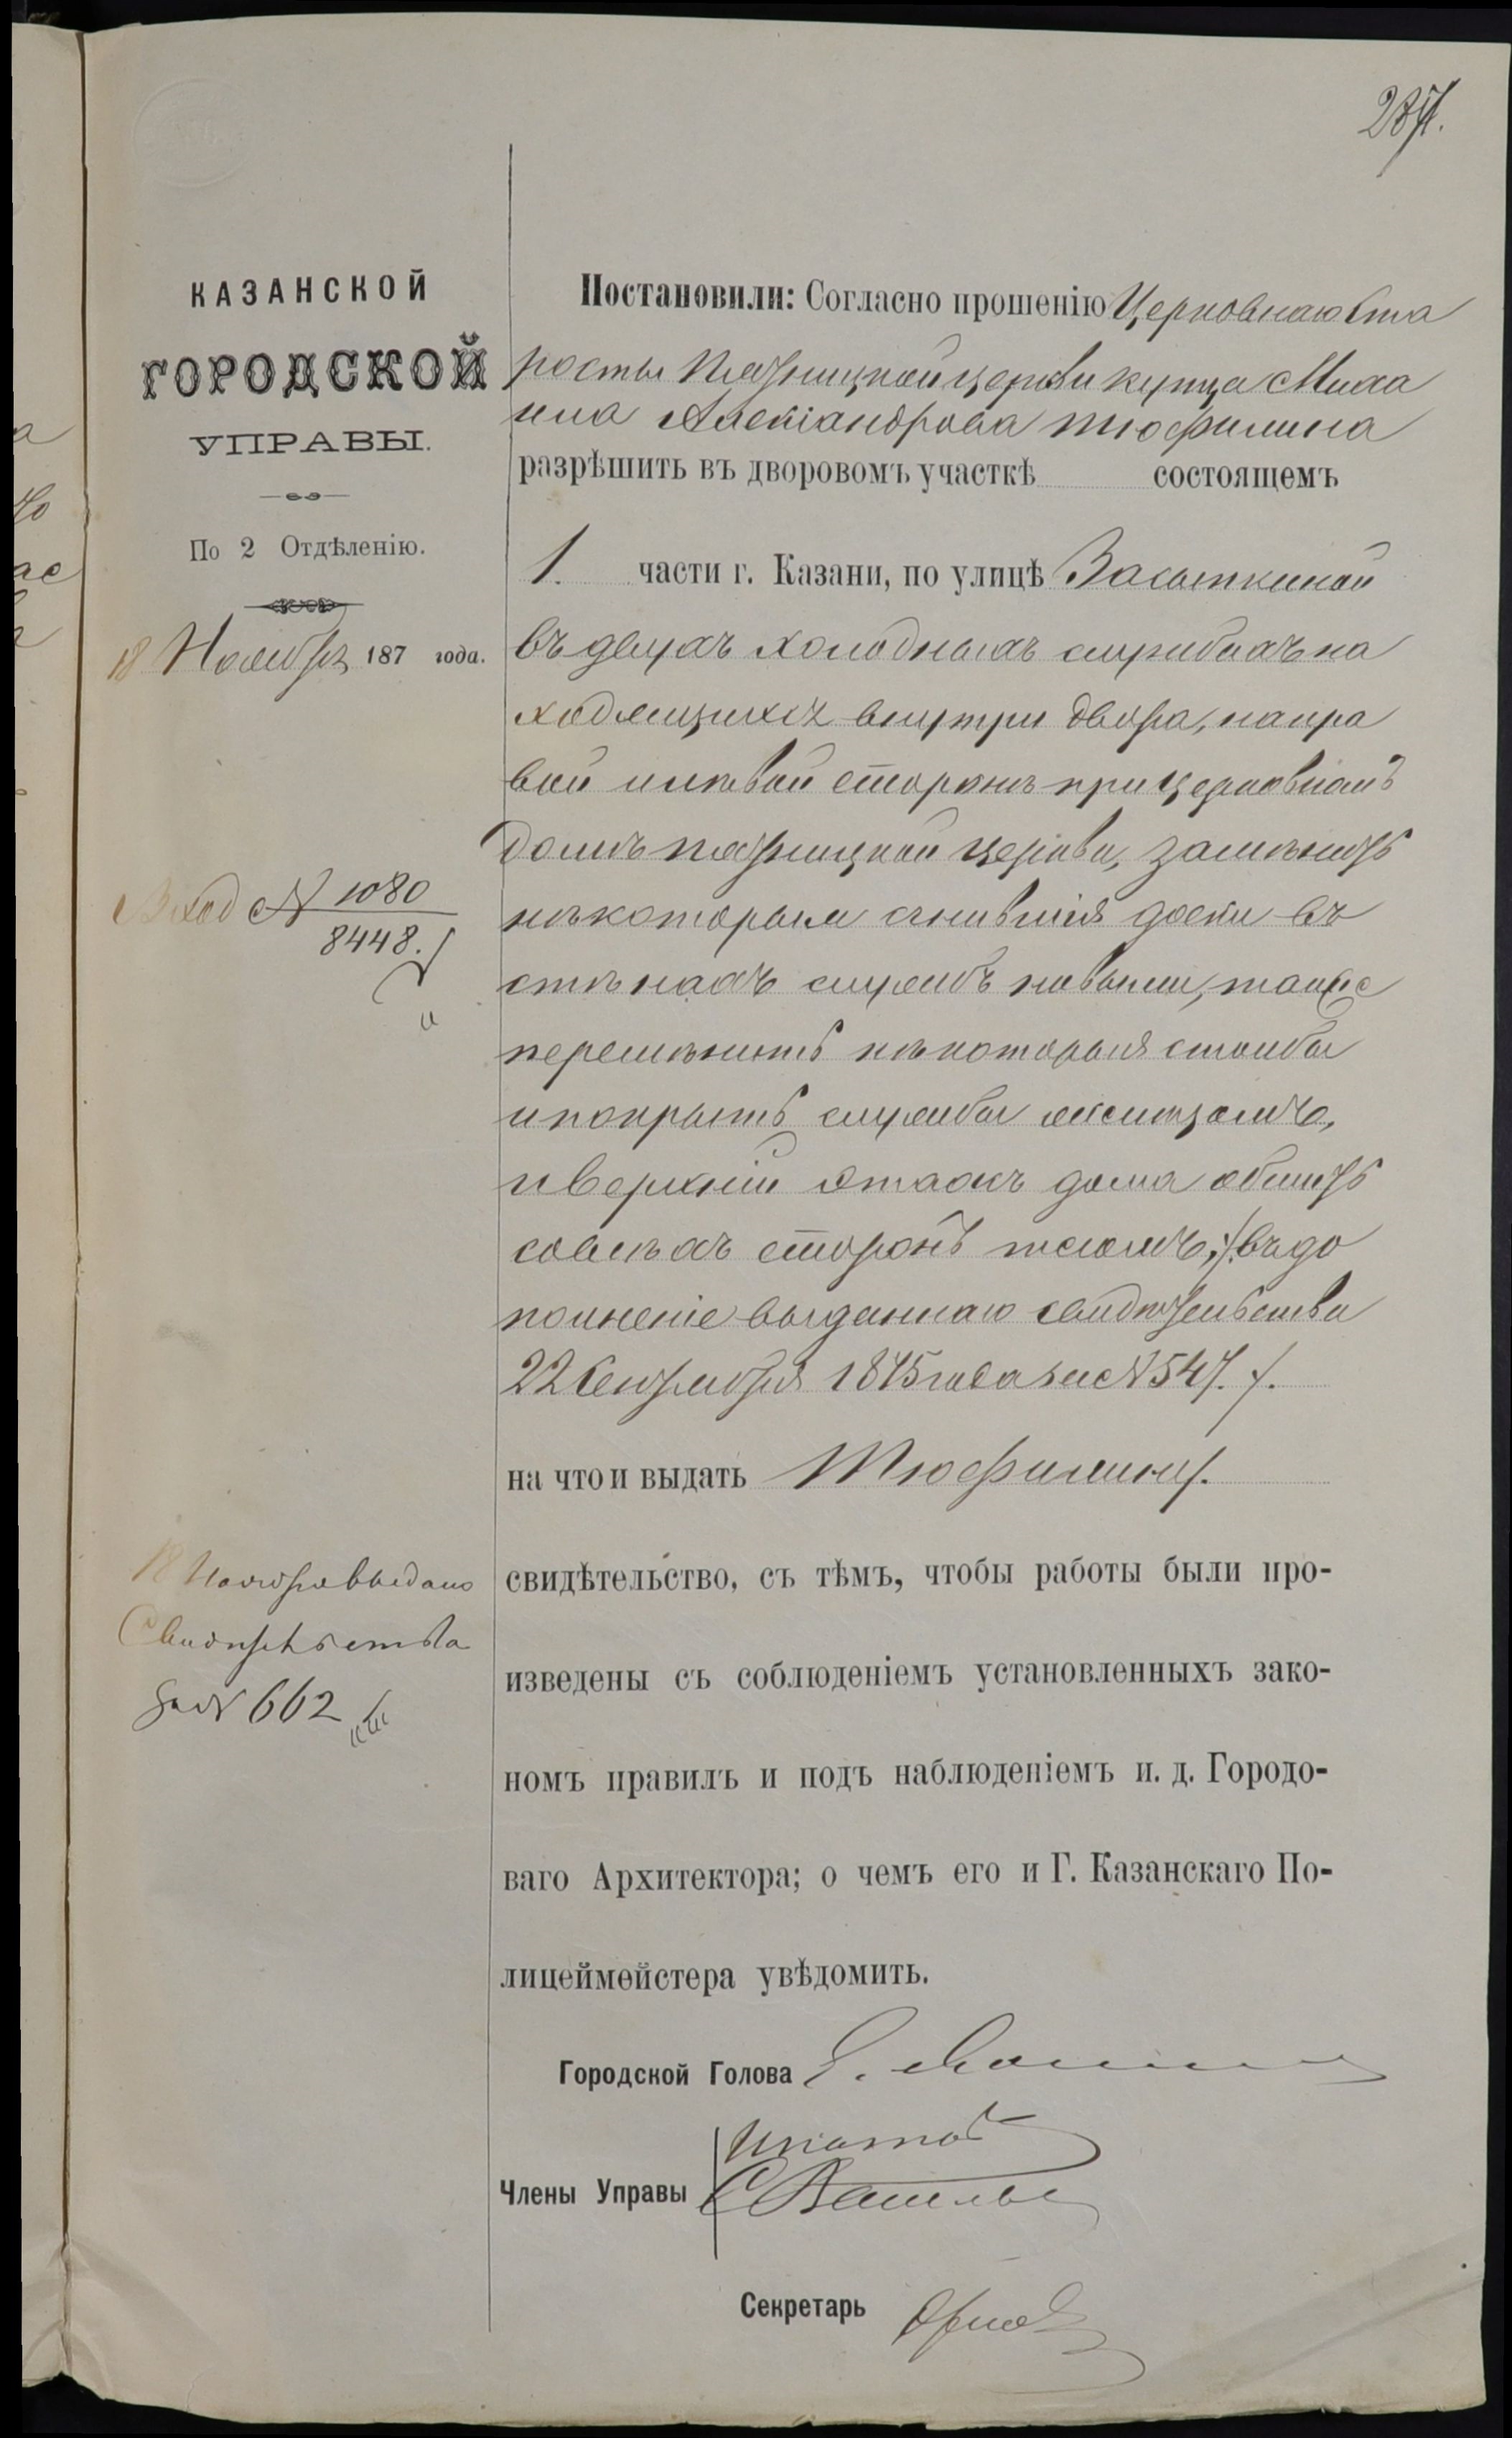 287.
КАЗАНСКОЙ
ГОРОДСКОЙ
УПРАВЫ.
По 2 Отдѣленію.
18 Ноября 187 года.
Вход № 1080
8448.
18 Ноября выдано
Свидѣтельства
за № 662
Постановили: Согласно прошенію Церковнаго Ста
росты Пятницкой церкви купца Миха
ила Александрова Тюфилина
разрѣшить въ дворовомъ участкѣ состоящемъ
1. части г. Казани, по улицѣ Засыпкиной
въ двухъ холодныхъ службахъ на
ходящихся внутри двора, на пра
вой и лѣвой сторонѣ при церковномъ
домѣ Пятницкой церкви, замѣнить
нѣкоторыя сгнившія доски въ
стѣнахъ службъ новыми, также
перемѣнить нѣкоторыя столбы
и покрыть службы желѣзомъ,
и верхній этажъ дома обшить
со всѣхъ сторонъ тесомъ, /. въ до
полненіе выданнаго свидѣтельства
22 Сентября 1875 года за № 547. /.
на что и выдать Тюфилину.
свидѣтельство, съ тѣмъ, чтобы работы были про-
изведены съ соблюденіемъ установленныхъ зако-
номъ правилъ и подъ наблюденіемъ и. д. Городо-
ваго Архитектора; о чемъ его и Г. Казанскаго По-
лицеймейстера увѣдомить.
Городской Голова
Члены Управы
Секретарь